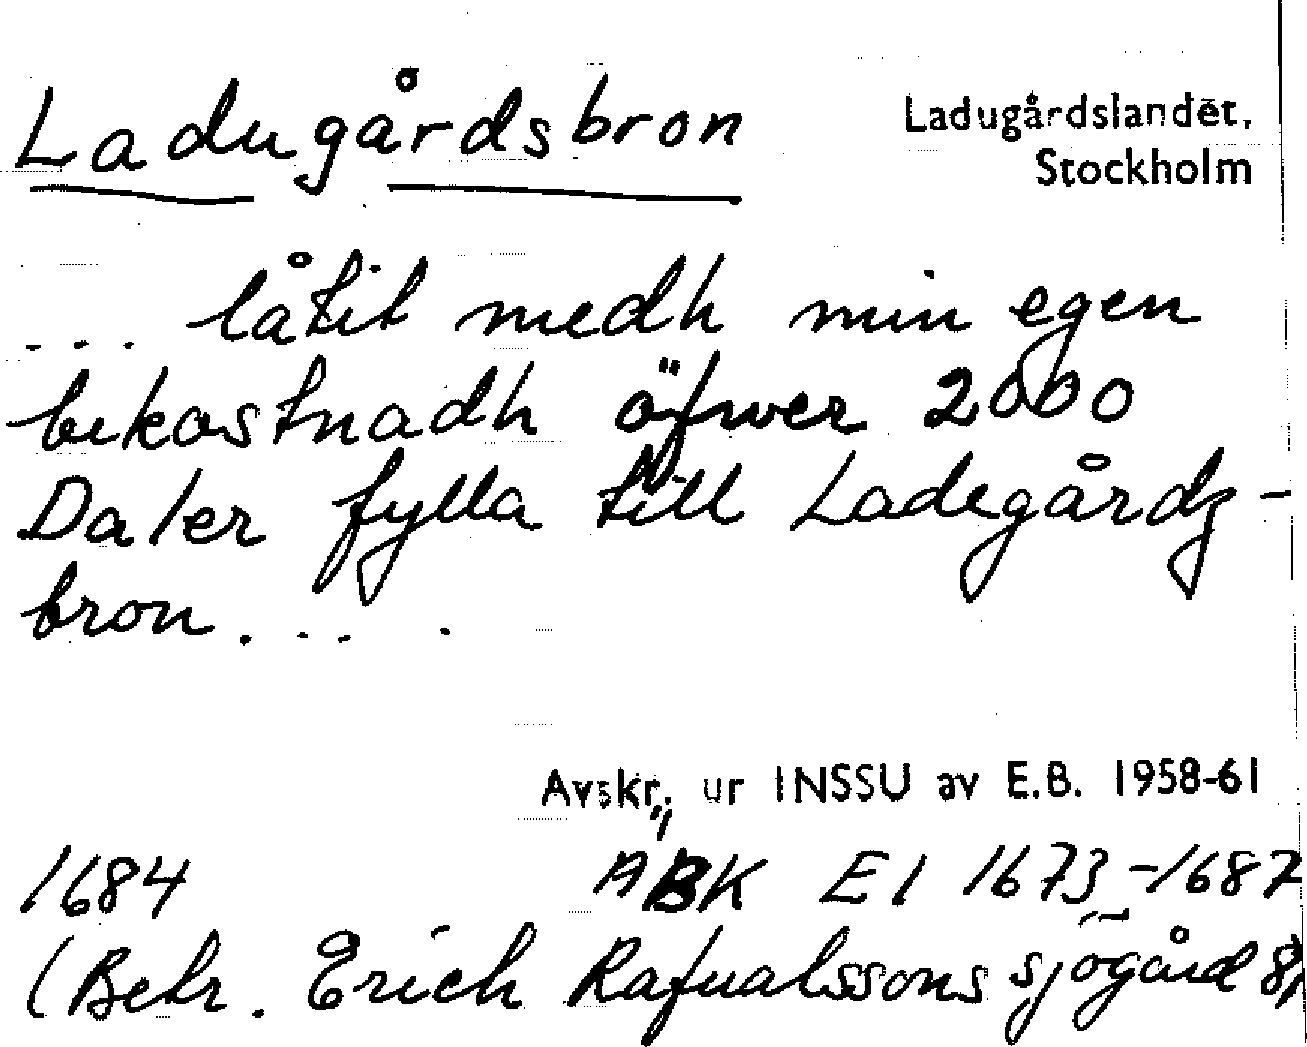 Ladugårdsbron
Ladugårdslandet,
Stockholm
... låtit medh min egen
bekostnadh öfwer 2000
Daler fylla till Ladegårdz-
bron....
Avskr. ur INSSU av E.B. 1958-61
1684 ÄBK E1 1673-1687
(Betr. Erich Rafualssons sjögård